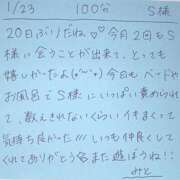 1/23 100分 S様
20日ぶりだね♡♡今月2回もS
様に会うことが出来て、とっても
嬉しかったよ(o^^o)今日もバードや
お風呂でS様にいっぱい責められ
て、数えきれないくらいイきまくって
気持ち良かった///いつも仲良くして
くれてありがとうネまた遊ぼうね!!
みと